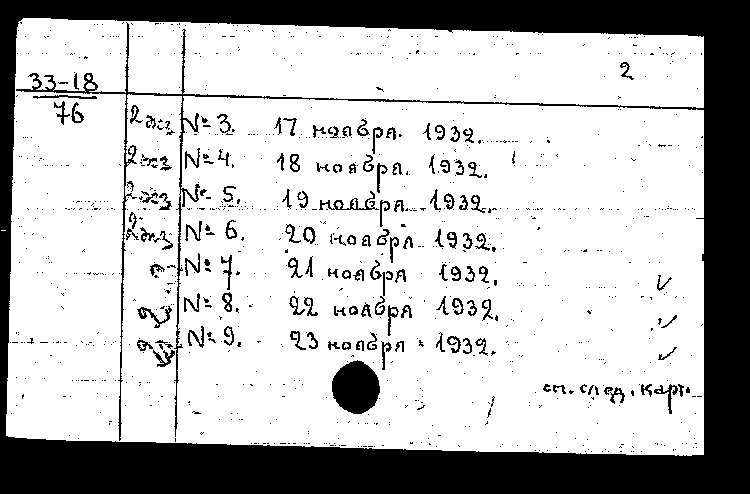 2
33-18
76
2 экз № 3. 17 ноября. 1932.
2 экз № 4. 18 ноября. 1932.
2 экз № 5. 19 ноября 1932.
2 экз № 6. 20 ноября 1932.
№ 7. 21 ноября 1932.
№ 8. 22 ноября 1932.
№ 9. 23 ноября 1932.
см. след. карт.